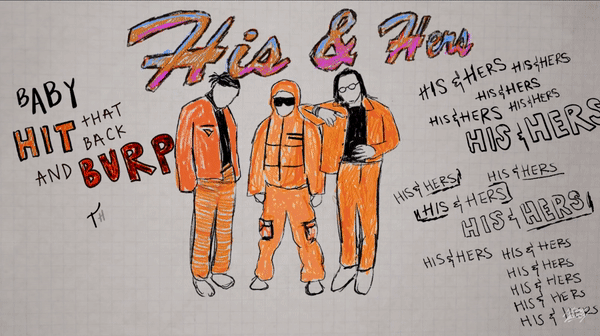 His & Hers
BABY
HIT THAT
BACK
AND BURP
HIS & HERS HIS & HERS
HIS & HERS
HIS & HERS HIS & HERS
HIS & HERS
HIS & HERS HIS & HERS
HIS & HERS
HIS & HERS
HIS & HERS HIS & HERS
HIS & HERS
HIS & HERS
HIS & HERS
HIS & HERS